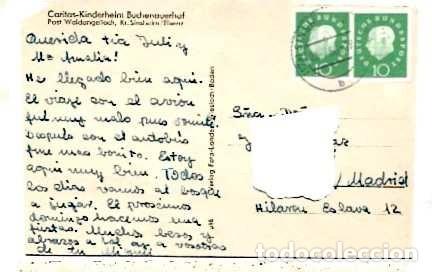 Caritas-Kinderheim Buchenauerhof
Post Waldangelloch, Kr. Sinsheim (Elsenz)
Querida tía Juli y
Mª Amalia!
He llegado bien aquí.
El viaje con el avión
fui muy malo pues vomité.
Después con el autobús
fue mas bonito. Estoy
aquí muy bien. Todos
los días vamos al bosque
a jugar. El próximo
domingo hacemos una
fiesta. Muchos besos y
abrazos a a vosotras
de tu Miguel
DEUTSCHE BUNDESPOST
10
10
b
Madrid
Hilarion Eslava 12
todocoleccion.net